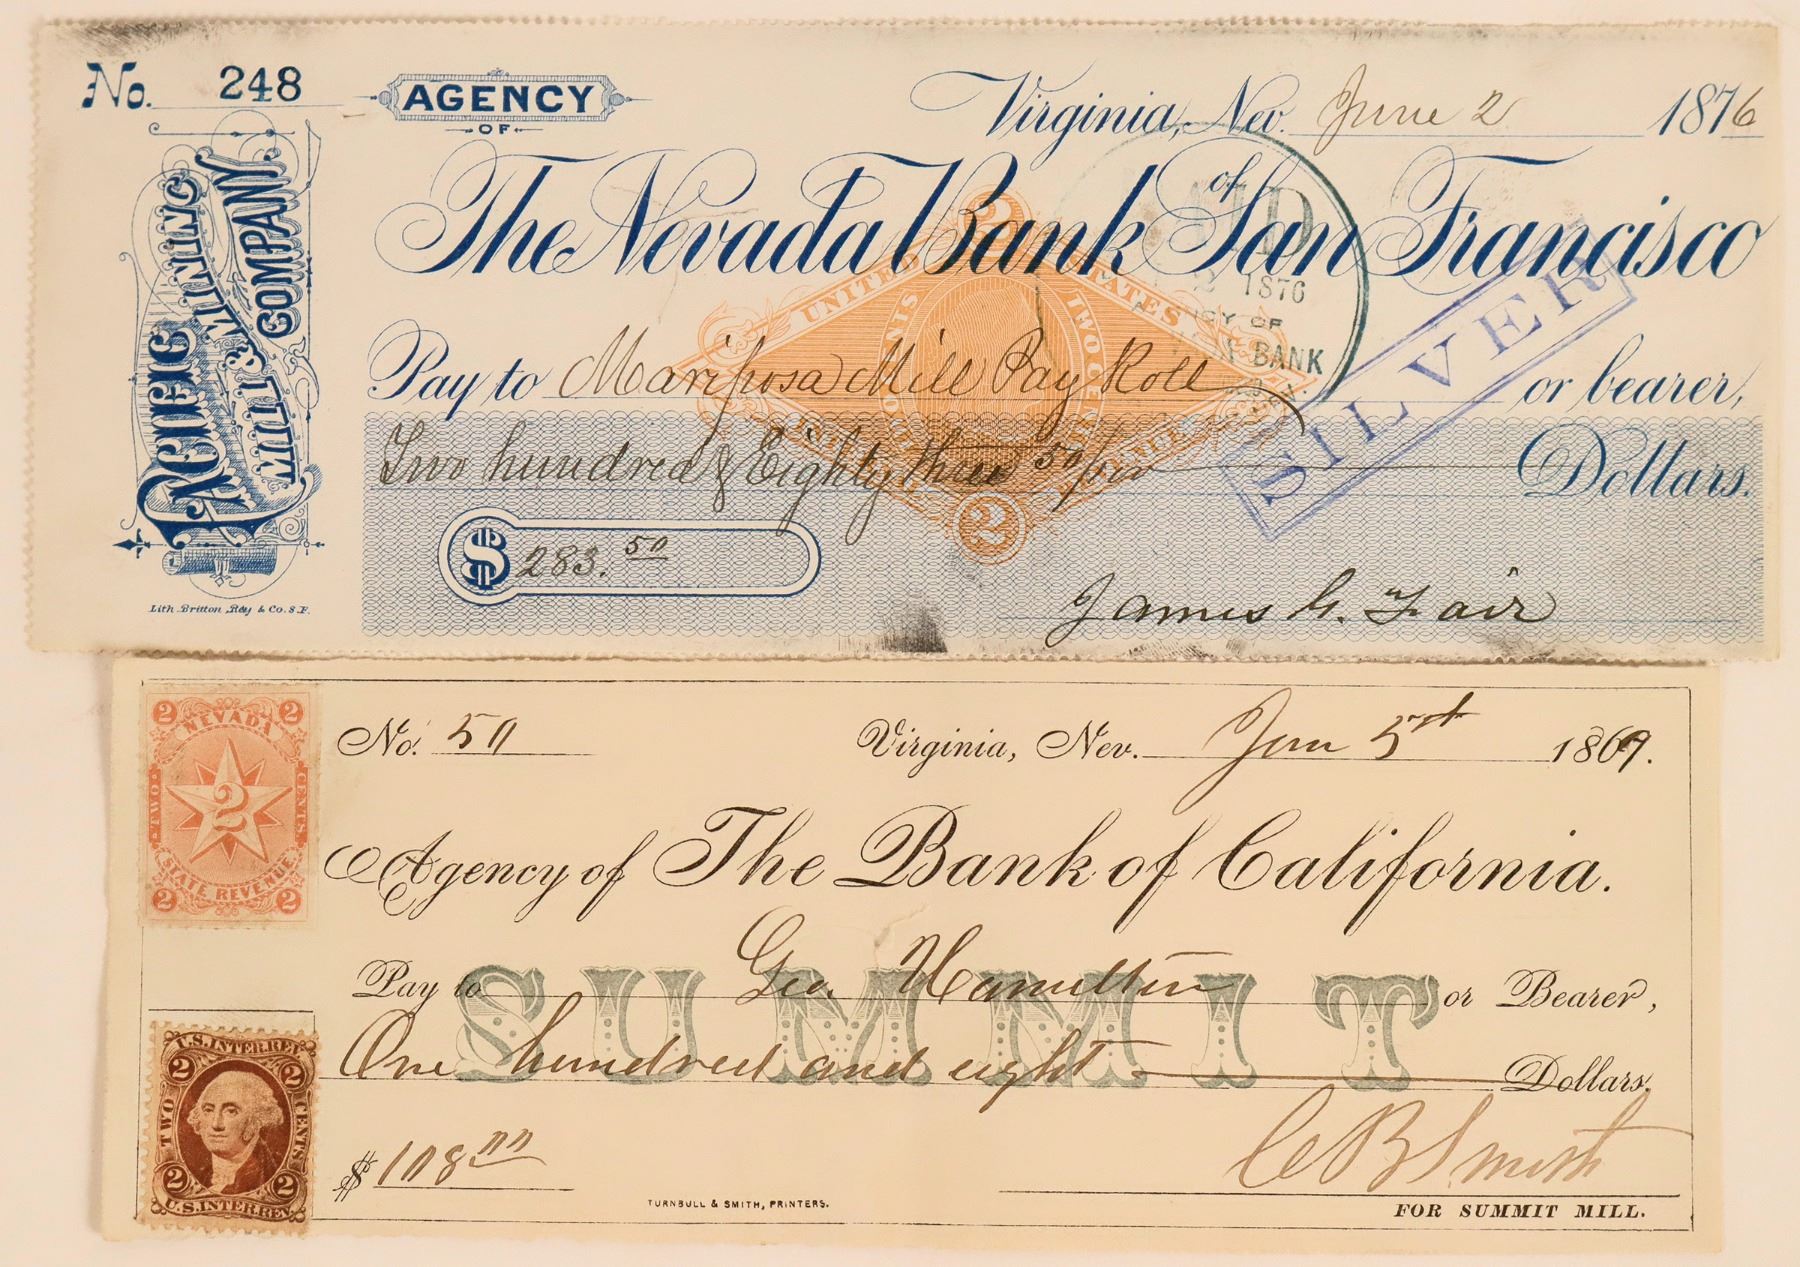 No. 248
AGENCY
OF
Virginia, Nev. June 2 1876
The Nevada Bank of San Francisco
PACIFIC
MILL & MINING
COMPANY.
UNITED STATES
TWO CENTS
2
1876
OF
BANK
SILVER
Pay to Mariposa Mill Pay Roll or bearer,
Two hundred & Eighty three 50/00 Dollars.
2
$ 283.50
James G. Fair
Lith. Britton, Rey & Co. S.F.
2 NEVADA 2
TWO CENTS.
2
STATE REVENUE.
2 2
No. 50
Virginia, Nev. Jan 5th 1869.
Agency of The Bank of California.
Pay to Geo. Hamilton or Bearer,
SUMMIT
One hundred and eight Dollars.
U.S. INTER. REV.
2 2
TWO CENTS
2 2
U.S. INTER. REV.
$ 108.00
C B Smith
TURNBULL & SMITH, PRINTERS.
FOR SUMMIT MILL.